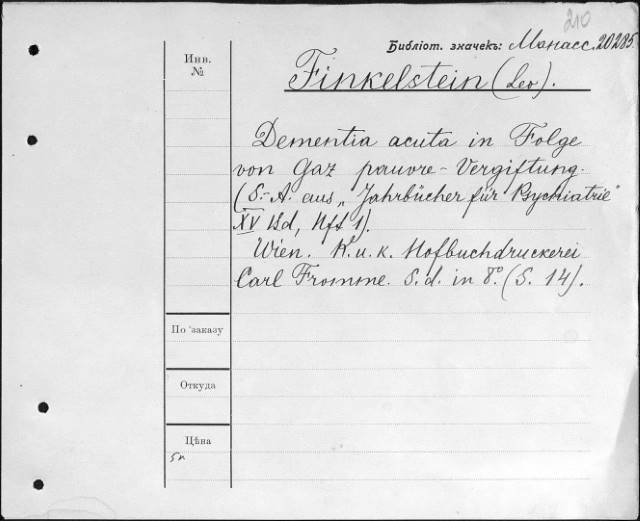 210
Библіот. значекъ: Монасс. 20285.
Инв.
№
Finkelstein (Leo).
Dementia acuta in Folge
von Gaz pauvre-Vergiftung.
(S.-A. aus „Jahrbücher für Psychiatrie"
XV Bd, Hft 1).
Wien. K. u. k. Hofbuchdruckerei
Carl Fromme. S. d. in 8° (S. 14).
По заказу
Откуда
Цѣна